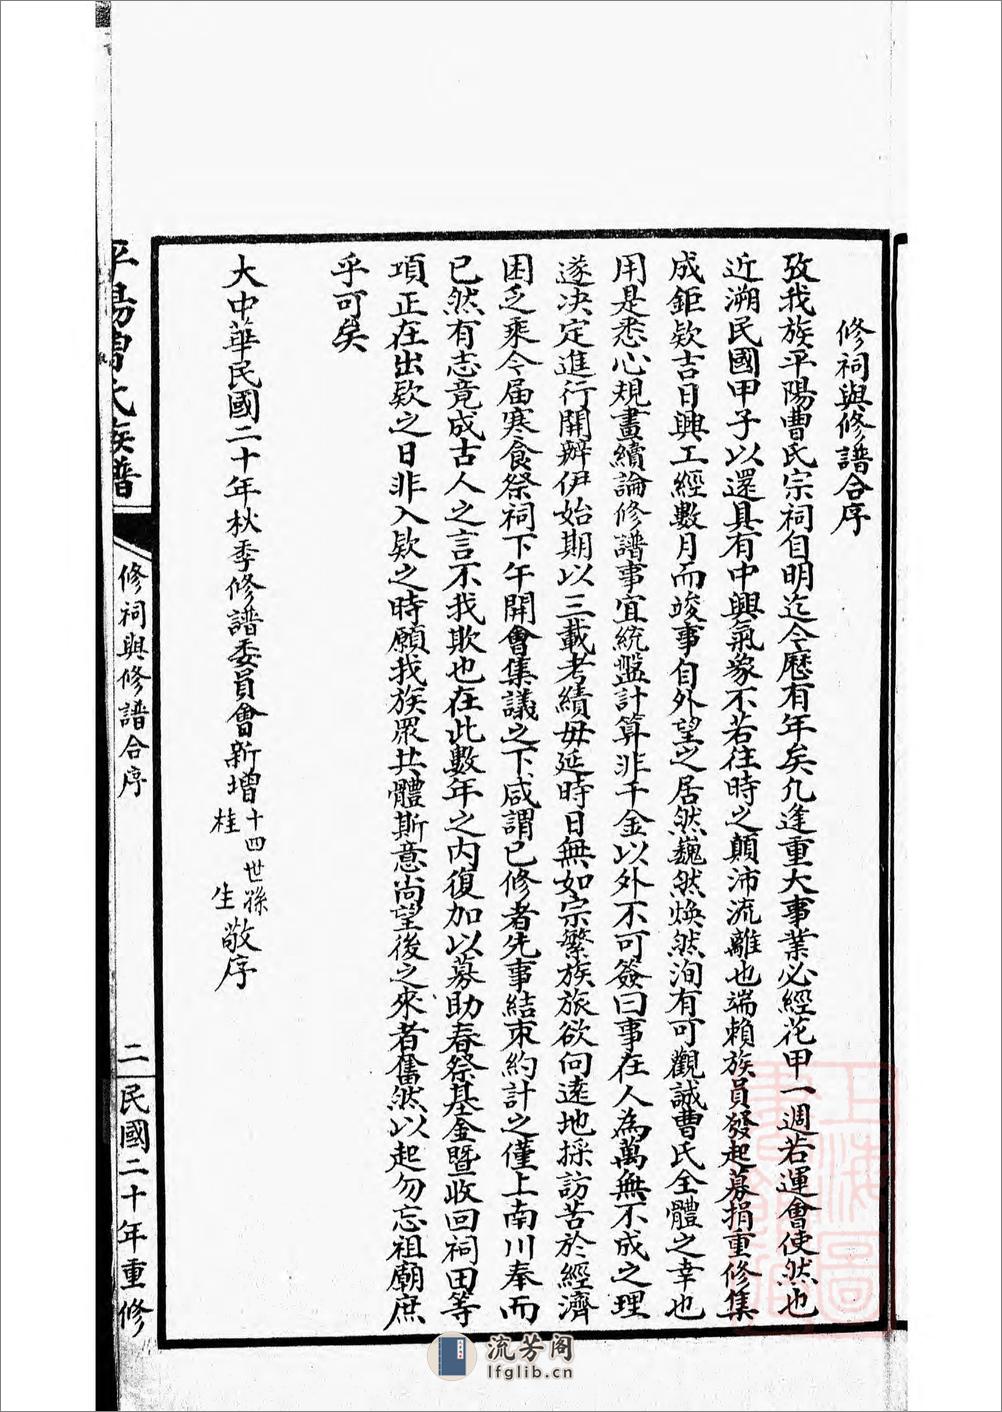 修祠與修譜合序
攷我族平陽曹氏宗祠自明迄今歷有年矣凢逢重大事業必經花甲一週若運會使然也
近溯民國甲子以還具有中興氣象不若往時之顛沛流離也端賴族員發起募捐重修集
成鉅欵吉日興工經數月而竣事自外望之居然巍然煥然洵有可觀誠曹氏全體之幸也
用是悉心規畫續論修譜事宜統盤計算非千金以外不可簽曰事在人為萬無不成之理
遂決定進行開辦伊始期以三載考績毋延時日無如宗繁族旅欲向遠地採訪苦於經濟
困乏乘今届寒食祭祠下午開會集議之下咸謂已修者先事結束約計之僅上南川奉而
已然有志竟成古人之言不我欺也在此數年之内復加以募助春祭基金暨收回祠田等
項正在出欵之日非入欵之時願我族眾共體斯意尚望後之來者奮然以起勿忘祖廟庶
乎可矣
大中華民國二十年秋季修譜委員會新增十四世孫桂生敬序
平陽曹氏族譜
修祠與修譜合序
二
民國二十年重修
上海圖書館藏
流芳阁
lfglib.cn